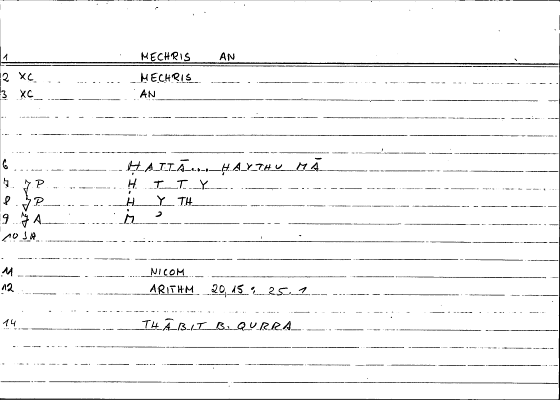 1 MECHRIS AN
2 XC MECHRIS
3 XC AN
6 ḤATTĀ... ḤAYTHU MĀ
7 P Ḥ T T Y
8 P Ḥ Y TH
9 A M ʾ
10 JA
11 NICOM
12 ARITHM 20,15 : 25.1
14 THĀBIT B. QURRA